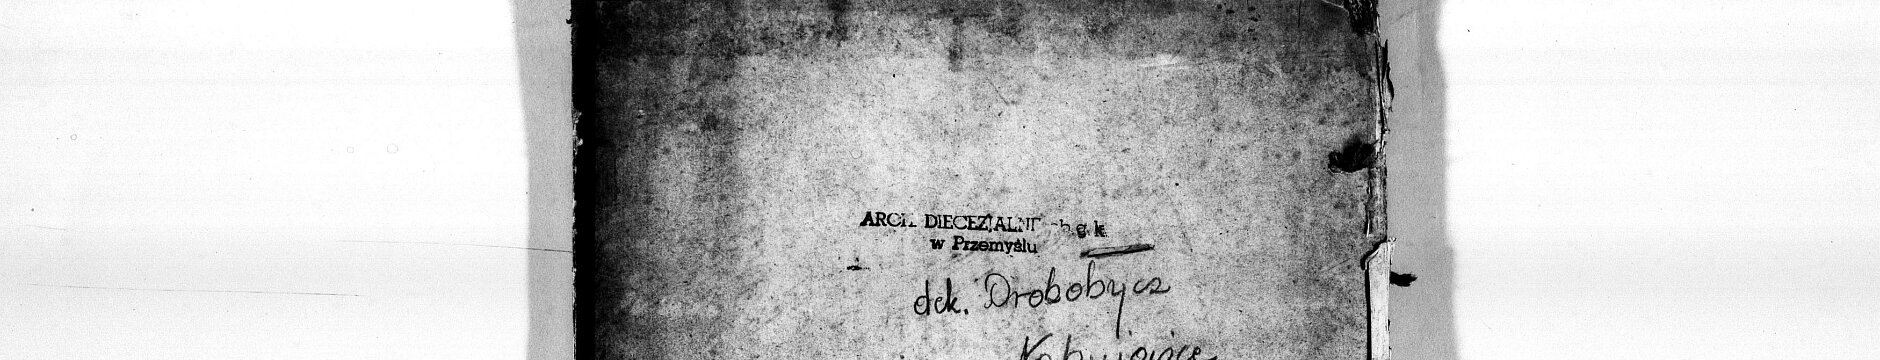 ARCH. DIECEZJALNE ob. g. k.
w Przemyślu
dek. Drobobycz